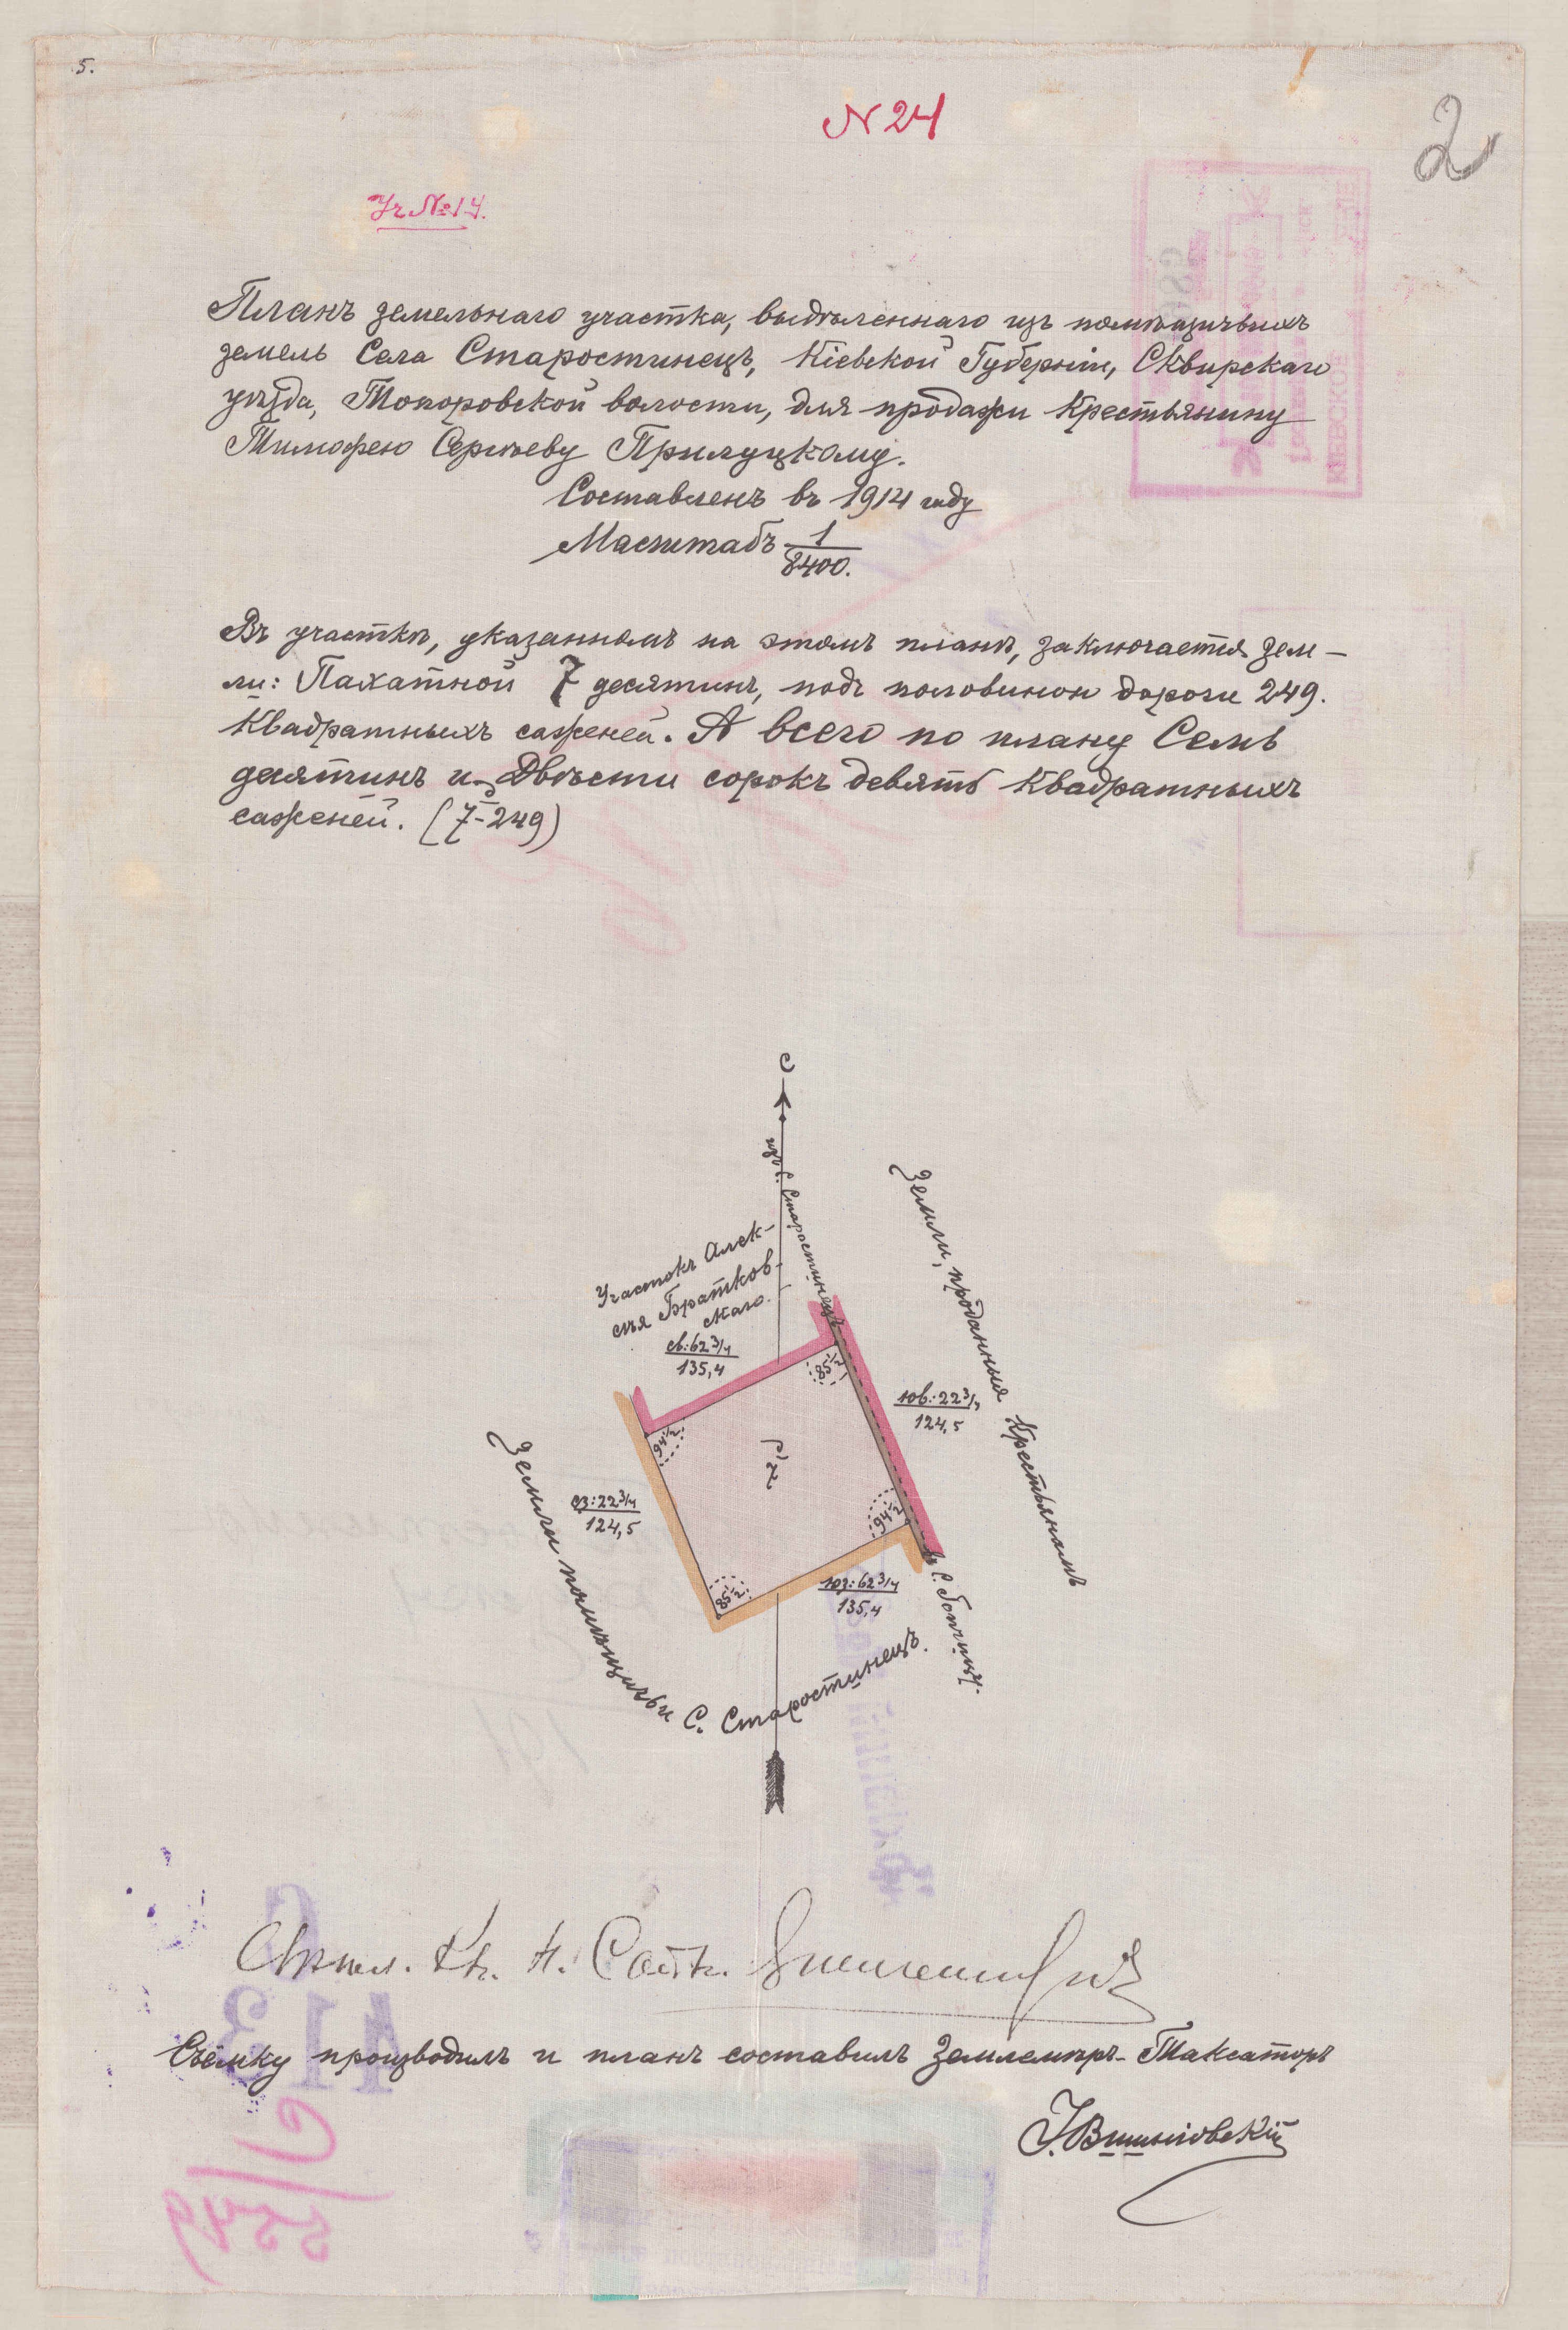 5.
N 24
2
Уч №14.
Планъ земельнаго участка, выдѣленнаго изъ помѣщичьихъ
земель Села Старостинецъ, Кіевской Губерніи, Сквирскаго
уѣзда, Топоровской волости, для продажи Крестьянину
Тимофею Сергѣеву Прилуцкому.
Составленъ въ 1914 году
Масштабъ 1/8400.
Въ участкѣ, указанномъ на этомъ планѣ, заключается зем-
ли: Пахатной 7 десятинъ, подъ половиной дороги 249.
Квадратныхъ саженей. А всего по плану Семь
десятинъ и Двѣсти сорокъ девять Квадратныхъ
саженей. (7-249)
С
изъ С. Старостинецъ
Земли, проданныя Крестьянамъ
Участокъ Алек-
сѣя Братков-
скаго.
св:62 3/4
135,4
85 1/2
юв:22 3/4
124,5
94 1/2
сз:22 3/4
124,5
94 1/2
85 1/2
юз:62 3/4
135,4
въ С. Топчицу.
Земли помѣщичьи С. Старостинецъ.
Съёмку производилъ и планъ составилъ Землемѣръ-Таксаторъ
І.Вишніовскій